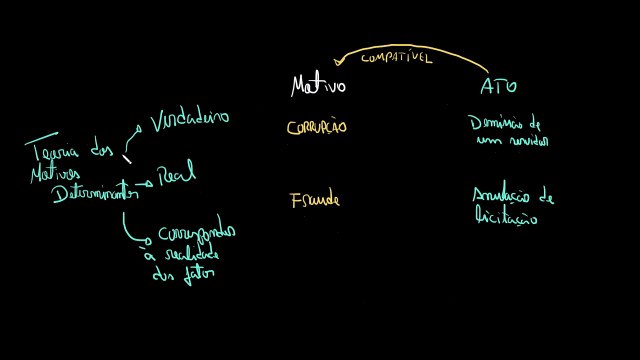 Teoria dos
Motivos
Determinantes
Verdadeiro
Real
Corresponder
à realidade
dos fatos
COMPATÍVEL
Motivo
ATO
CORRUPÇÃO
Demissão de
um servidor
Fraude
Anulação de
licitação